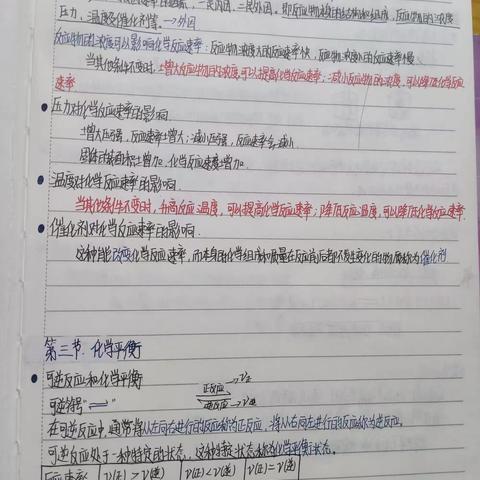 一类内因,二类外因,即反应物本身的结构和组成,反应物的浓度
压力、温度及催化剂等。→外因
反应物的浓度可以影响化学反应速率:反应物浓度大的反应速率快,反应物浓度小的反应速率慢
当其他条件不变时,增大反应物的浓度,可以提高化学反应速率;减小反应物的浓度,可以降低化学反应
速率
压力对化学反应速率的影响
增大压强,反应速率增大;减小压强,反应速率会减小
固体的表面积增加,化学反应速度增加.
温度对化学反应速率的影响
当其他条件不变时,升高反应温度,可以提高化学反应速率;降低反应温度,可以降低化学反应速率.
催化剂对化学反应速率的影响.
这种能改变化学反应速率,而本身的化学组成和质量在反应前后都不发生变化的物质称为催化剂
第三节:化学平衡
可逆反应和化学平衡
可逆符号"⇌" 正反应→V正 逆反应→V逆
在可逆反应中,通常将从左向右进行的反应称为正反应,将从右向左进行的反应称为逆反应.
可逆反应处于一种特定的状态,这种特定状态称为化学平衡状态。
反应速率 V(正)>V(逆) V(正)<V(逆) V(正)=V(逆)